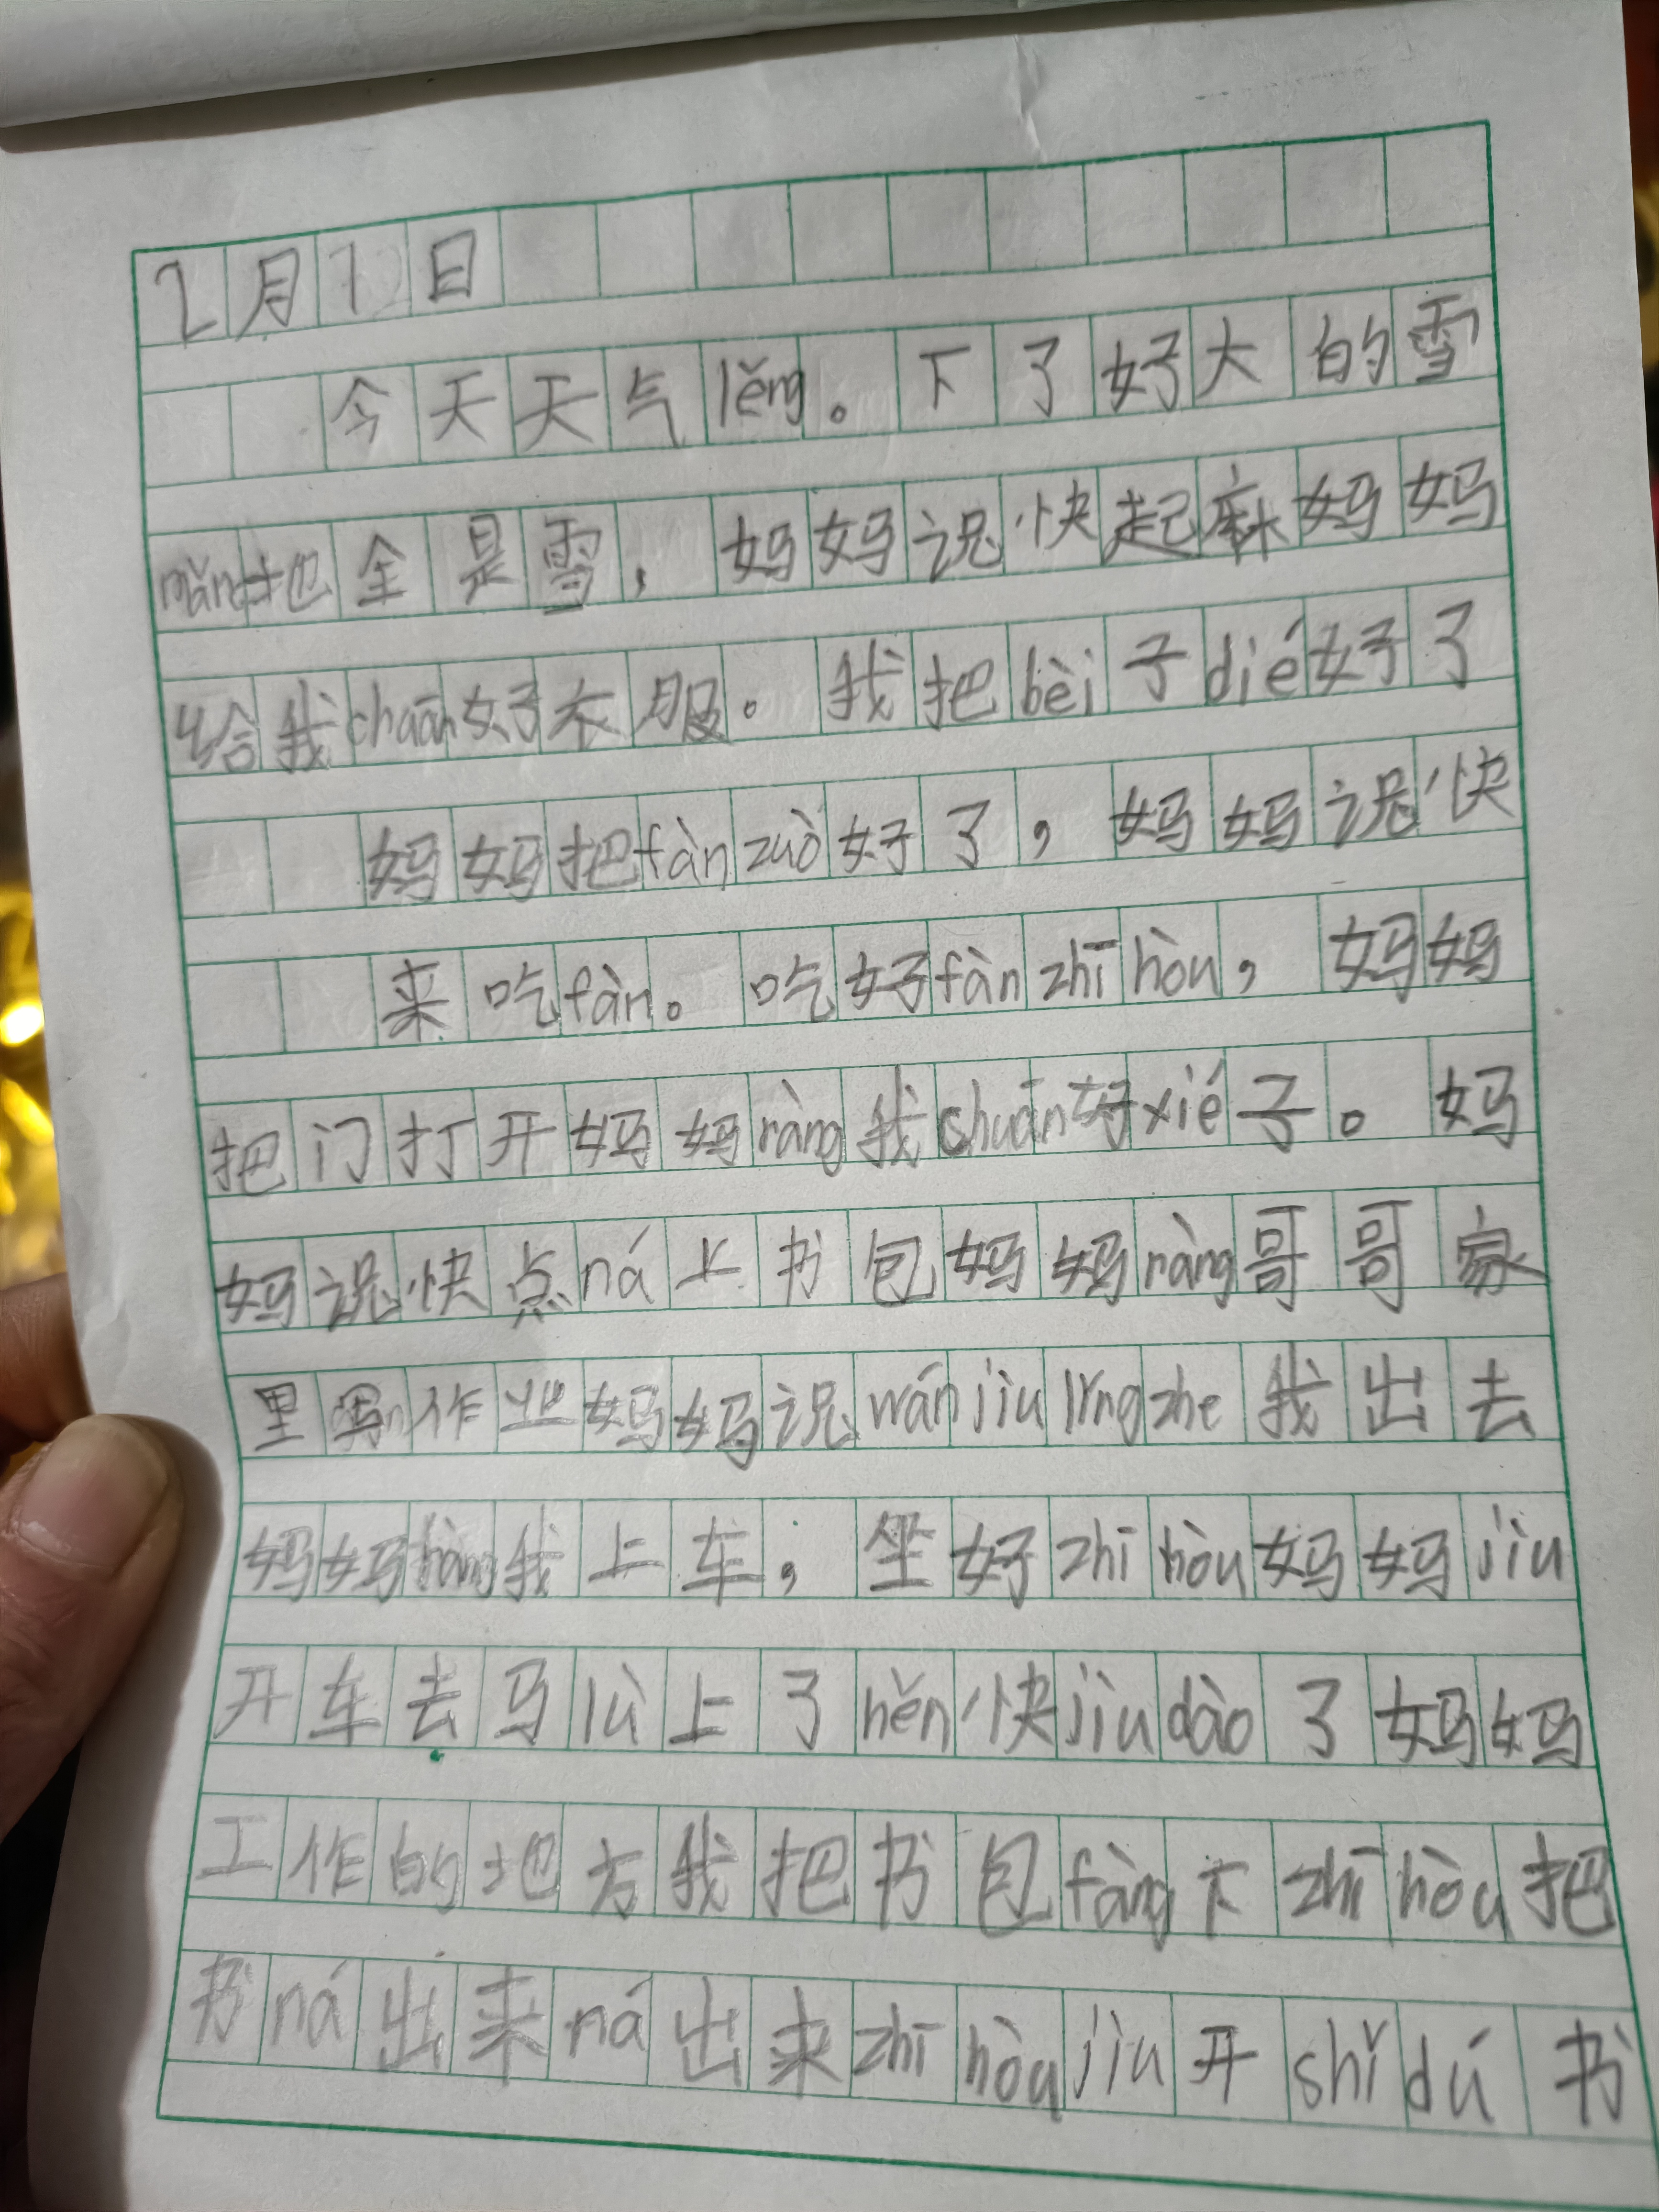 2月12日
今天天气lěng。下了好大的雪
mǎn地全是雪，妈妈说快起麻妈妈
给我chuān好衣服。我把bèi子dié好了
妈妈把fàn zuò好了，妈妈说快
来吃fàn。吃好fàn zhī hòu，妈妈
把门打开妈妈ràng我chuān好xié子。妈
妈说快点ná上书包妈妈ràng哥哥家
里写作业妈妈说wán jiù lǐng zhe我出去
妈妈bàng我上车，坐好zhī hòu妈妈jiù
开车去马lù上了hěn快jiù dào了妈妈
工作的地方我把书包fàng下zhī hòu把
书ná出来ná出来zhī hòu jiù开shǐ dú书